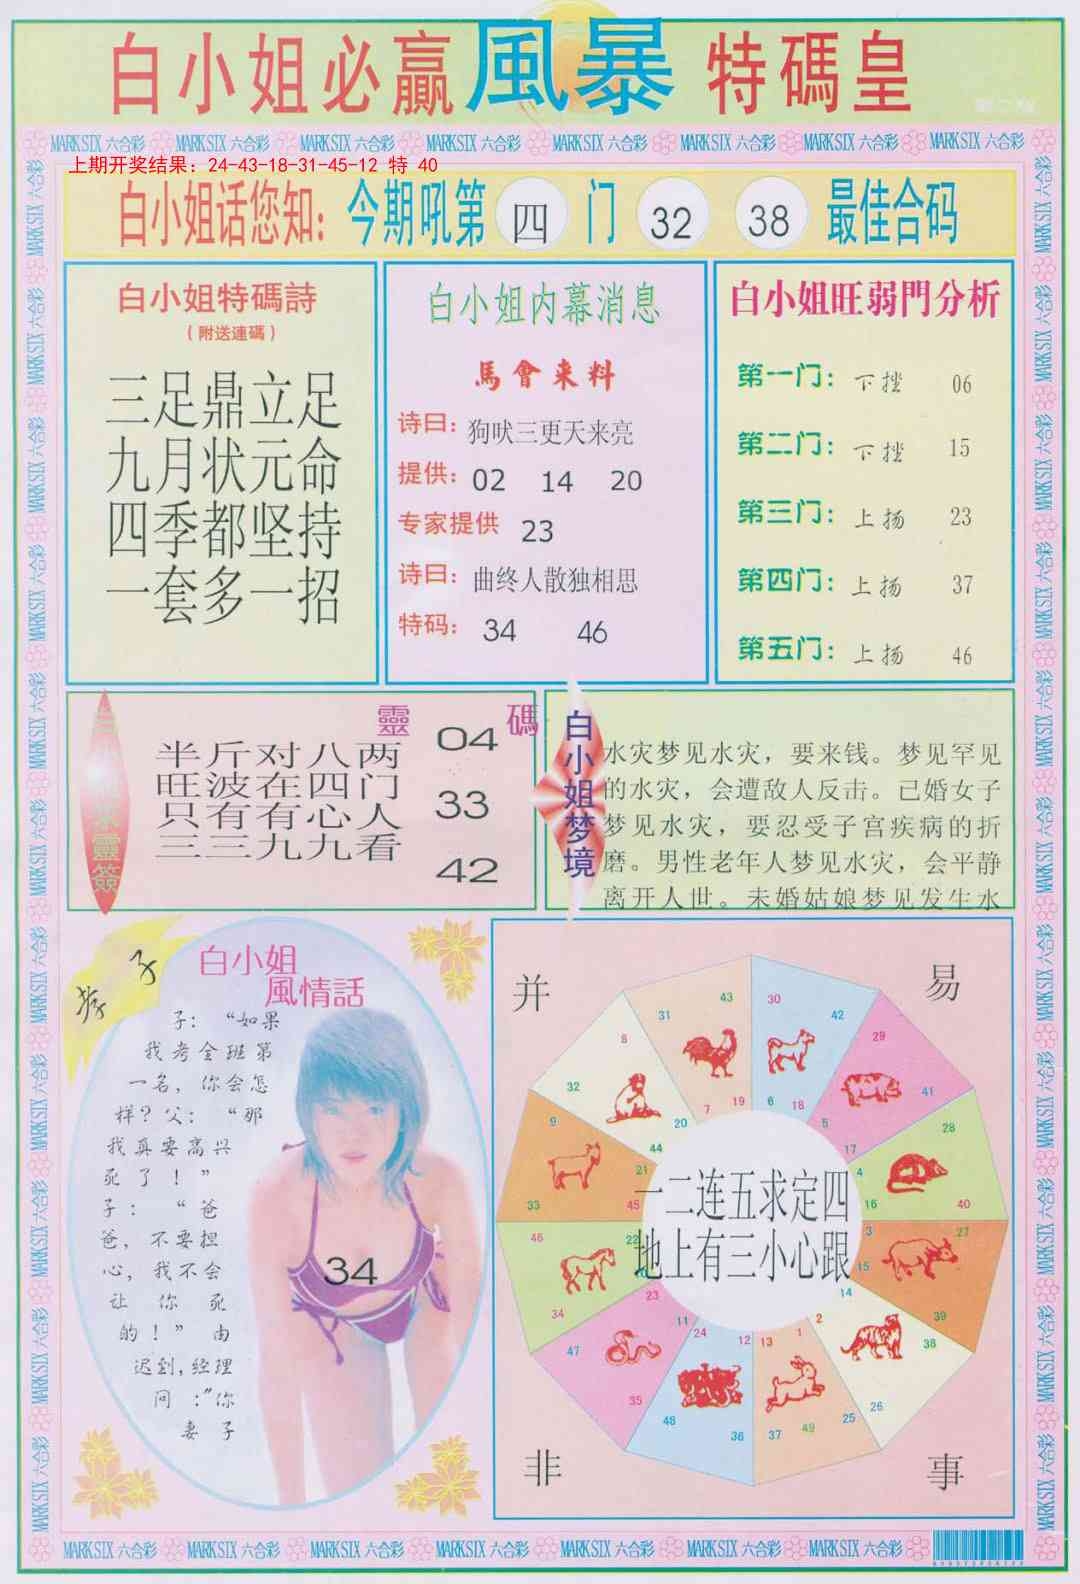 白小姐必贏風暴特碼皇
MARK SIX 六合彩 MARK SIX 六合彩 MARK SIX 六合彩 MARK SIX 六合彩 MARK SIX 六合彩 MARK SIX 六合彩 MARK SIX 六合彩 MARK SIX 六合彩
上期开奖结果：24-43-18-31-45-12 特 40
白小姐话您知：今期吼第 四 门 32 38 最佳合码
白小姐特碼詩
（附送連碼）
三足鼎立足
九月状元命
四季都坚持
一套多一招
白小姐内幕消息
馬會来料
诗曰：狗吠三更天来亮
提供：02 14 20
专家提供 23
诗曰：曲终人散独相思
特码：34 46
白小姐旺弱門分析
第一门：下挫 06
第二门：下挫 15
第三门：上扬 23
第四门：上扬 37
第五门：上扬 46
靈碼
半斤对八两
旺波在四门
只有有心人
三三九九看
04
33
42
靈簽
白小姐梦境
水灾梦见水灾，要来钱。梦见罕见
的水灾，会遭敌人反击。已婚女子
梦见水灾，要忍受子宫疾病的折
磨。男性老年人梦见水灾，会平静
离开人世。未婚姑娘梦见发生水
白小姐
風情話
孝子
子：“如果
我考全班第
一名，你会怎
样？父：“那
我真要高兴
死了！”
子：“爸
爸，不要担
心，我不会
让你死
的！”由
迟到,经理
问：″你
妻子
34
并
易
非
事
一二连五求定四
地上有三小心跟
31 43 7 19
30 42 6 18
29 41 5 17
28 40 4 16
27 39 3 15
38 26 2 14
1 13 25 37 49
12 24 36 48
11 23 35 47
46 34 22 10
9 21 33 45
8 20 32 44
MARK SIX 六合彩 MARK SIX 六合彩 MARK SIX 六合彩 MARK SIX 六合彩 MARK SIX 六合彩 MARK SIX 六合彩 MARK SIX 六合彩